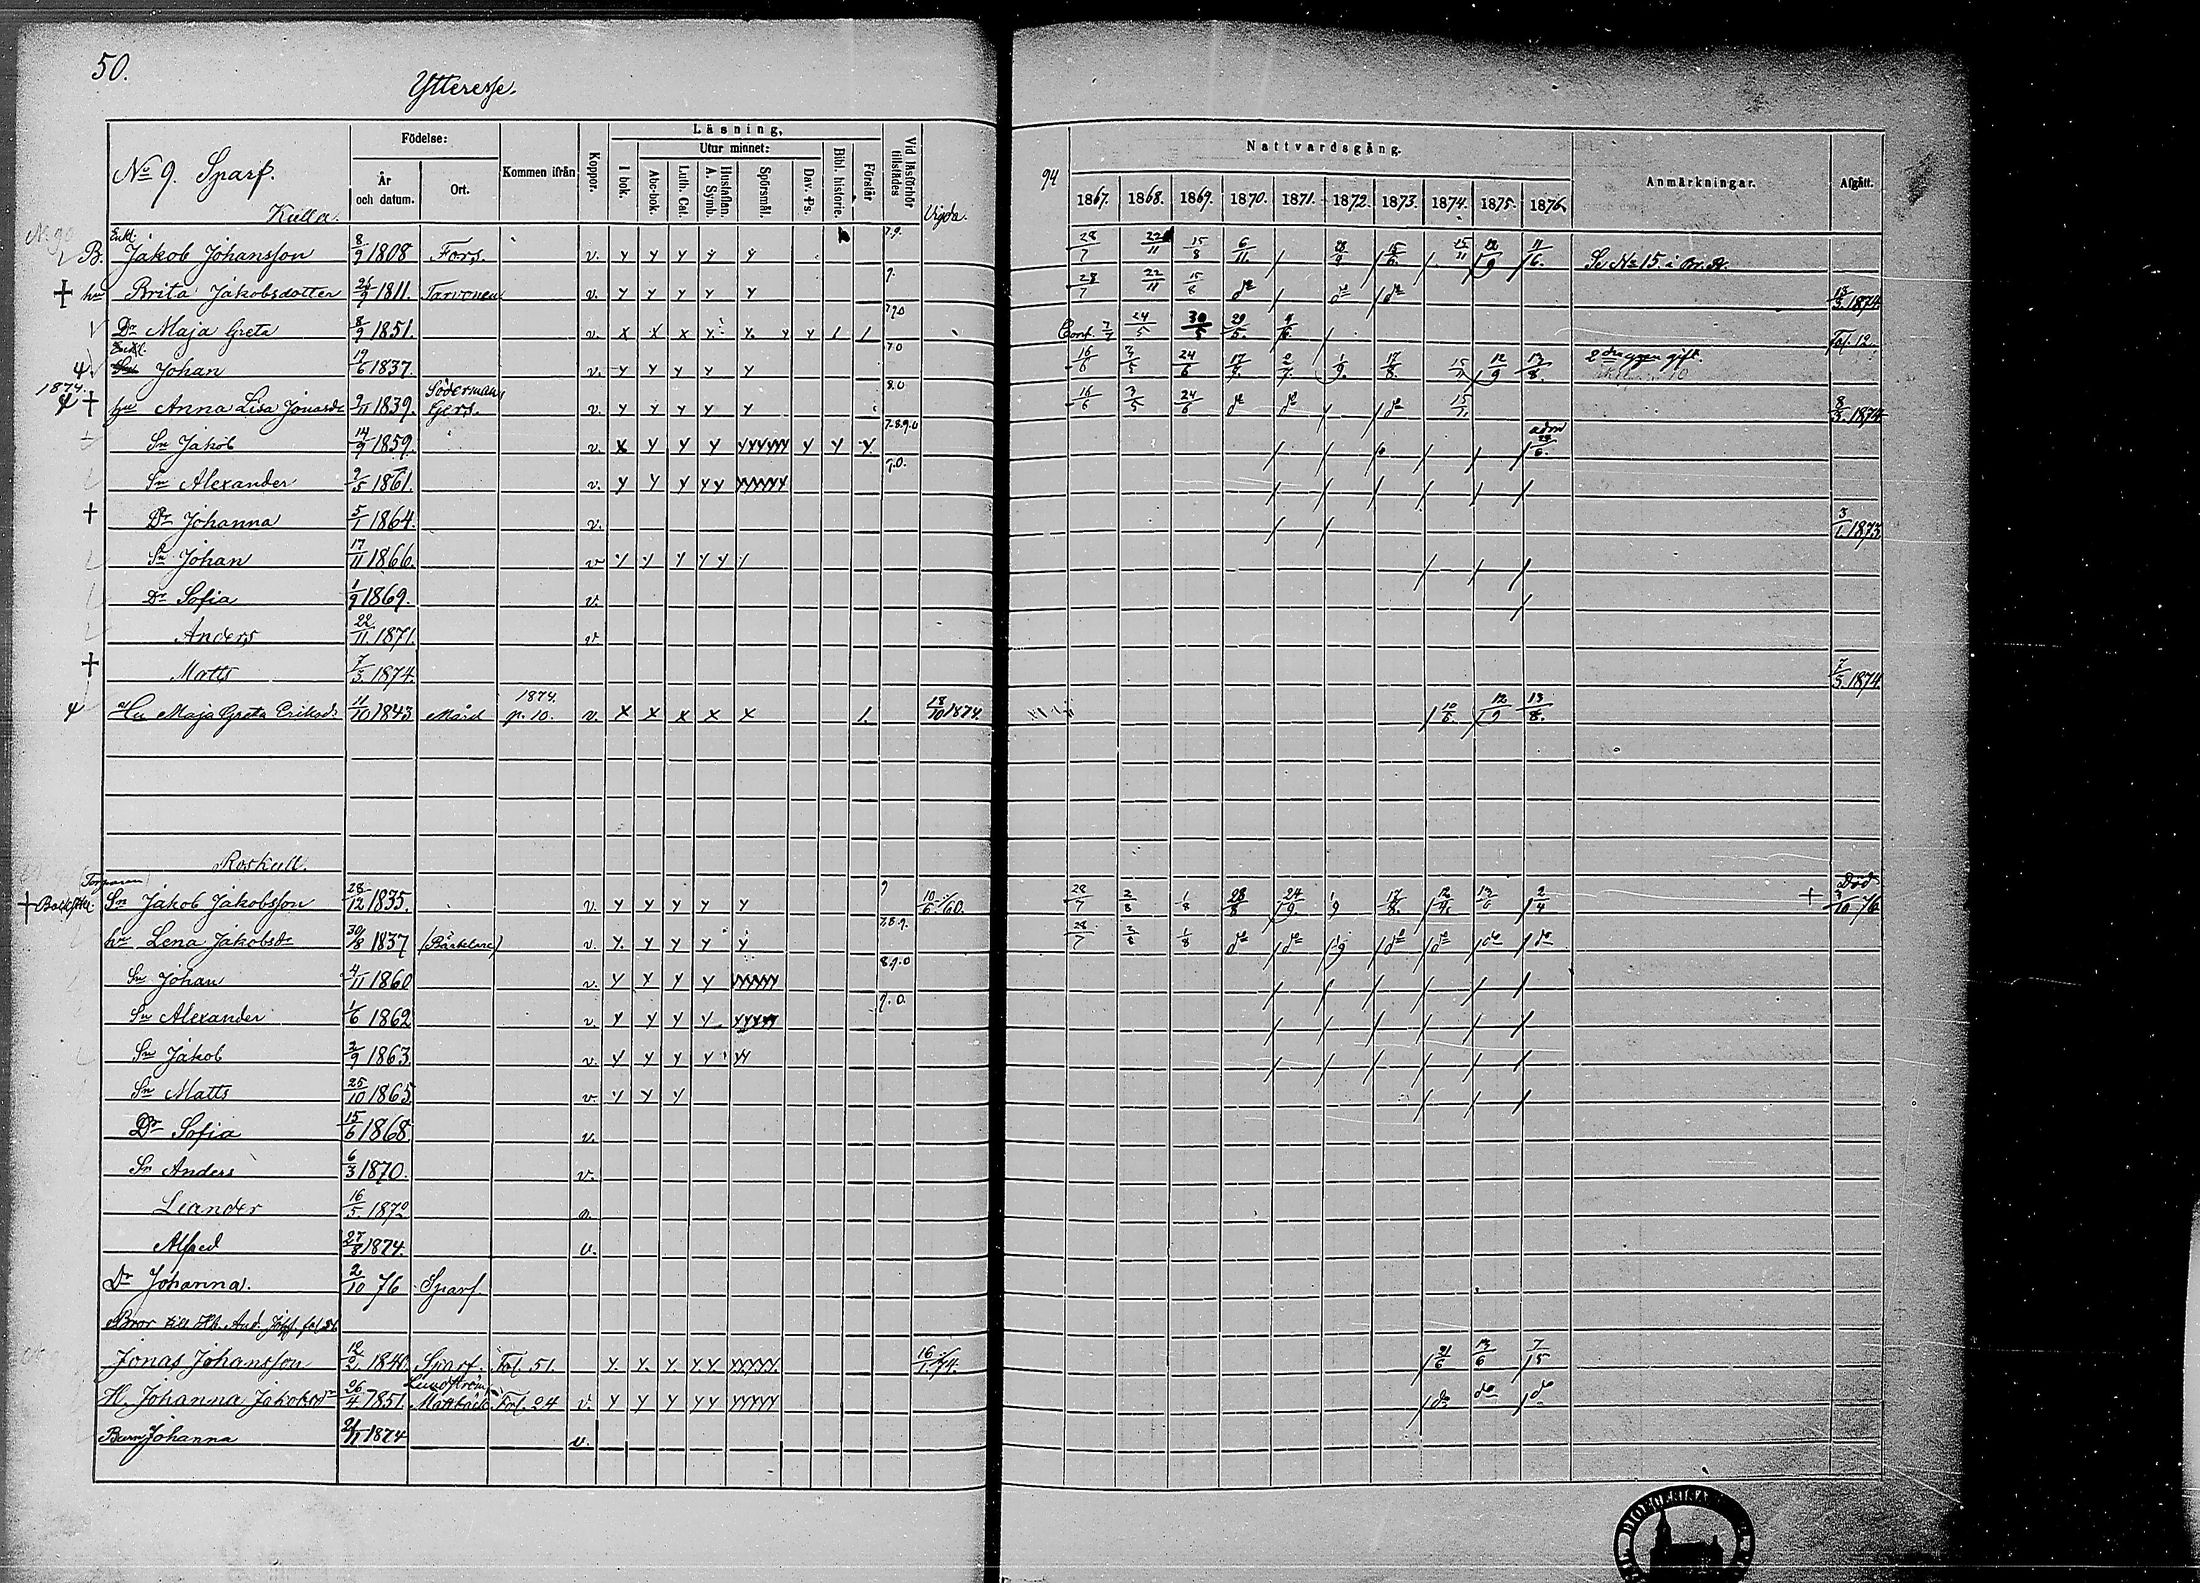 50.
Ytteresse.
Nº 9. Sparf.
Kulla.
Födelse:
År och datum.
Ort.
Kommen ifrån
Koppor.
Läsning,
Utur minnet:
I bok.
Abc-bok.
Luth. Cat.
Hustaflan. A. Symb.
Spörsmål.
Dav. Ps.
Bibl. historie.
Förstår
Vid läsförhör tillstädes
Vigda.
94
Nattvardsgång.
1867. 1868. 1869. 1870. 1871. 1872. 1873. 1874. 1875. 1876.
Anmärkningar.
Afgått.
Enkl.
B. Jakob Johansson 8/9 1808 Fors. v. y y y y y 7.9. 28/7 22/11 15/8 6/11. 28/9 15/6. 15/11 11/6. Se Nº 15. i
† hu Brita Jakobsdotter 1811. Tarvonen v. y y y y y 9. 28/7 22/11 15/8 dº dº dº 13/3 1874.
Dr Maja Greta 8/9 1851. v. x x x y y. y y 1 1 790 Conf. 24/5 30/5 29/5. Fol. 12.
Johan 19/6 1837. v. y y y y y 7.0 16/6 3/5 24/6 17/9. 2/7. 1/9 17/8. 15/11 12/9 13/8. 2 dra ggen gift.
1874.
† hu Anna Lisa Jonasdr 9/11 1839. Söderman, Gers. v. y y y y y 8.0 16/6 3/5 24/6 dº dº dº 15/11 8/3 1874
Sn Jakob 14/9 1859. v. x y y y yyyyyy y y y. 7.8.9.0 adm
Sn Alexander 2/5 1861. v. y y y yy yyyyyy 9.0.
† Dr Johanna 5/1 1864. v. 3/1 1873
Sn Johan 17/11 1866. v y y y y y y
Dr Sofia 1/9 1869. v.
Anders 22/11. 1871. v
† Matts 7/3. 1874. 7/3. 1874.
Hu Maja Greta Eriksdr 11/10 1843 Mård 1874. p. 10. v. x x x x x 1. 18/10 1874. 10/6. 12/9 13/8.
Roskull.
Torparen
† Backstu. Sn Jakob Jakobsson 28/12 1835. v. y y y y y 9 10/6. 60. 28/7 2/8 1/8 28/8 24/9. 1/9 17/8. 2/4 † Död 3/10 76
hu Lena Jakobsdr 30/8 1837 v y. y y y y 7.8.9. 28/7 2/8 1/8 dº dº 1/9 dº dº dº dº
Sn Johan 4/11 1860 v. y y y y yyyyyy 8.9.0
Sn Alexander 1/6 1862 v. y y y y yyyyy 9.0.
Sn Jakob 2/9 1863. v. y y y y yy
Sn Matts 25/10 1865 v. y y y
Dr Sofia 15/6 1868. v.
Sn Anders 6/3 1870. v.
Leander 16/5 1872
Alfred 27/8 1874. v.
Dr Johanna. 2/10 76 Sparf.
Bror till
Jonas Johansson 12/2. Sparf. Fol. 51. y. y. y. yy yyyyy. 16/1. 74. 21/6 13/6 7/5
H. Johanna Jakobsdr 26/4 1851. Lundström, Fol. 24 v. y y y yy yyyyy dº dº dº
Barn Johanna 1874 v.